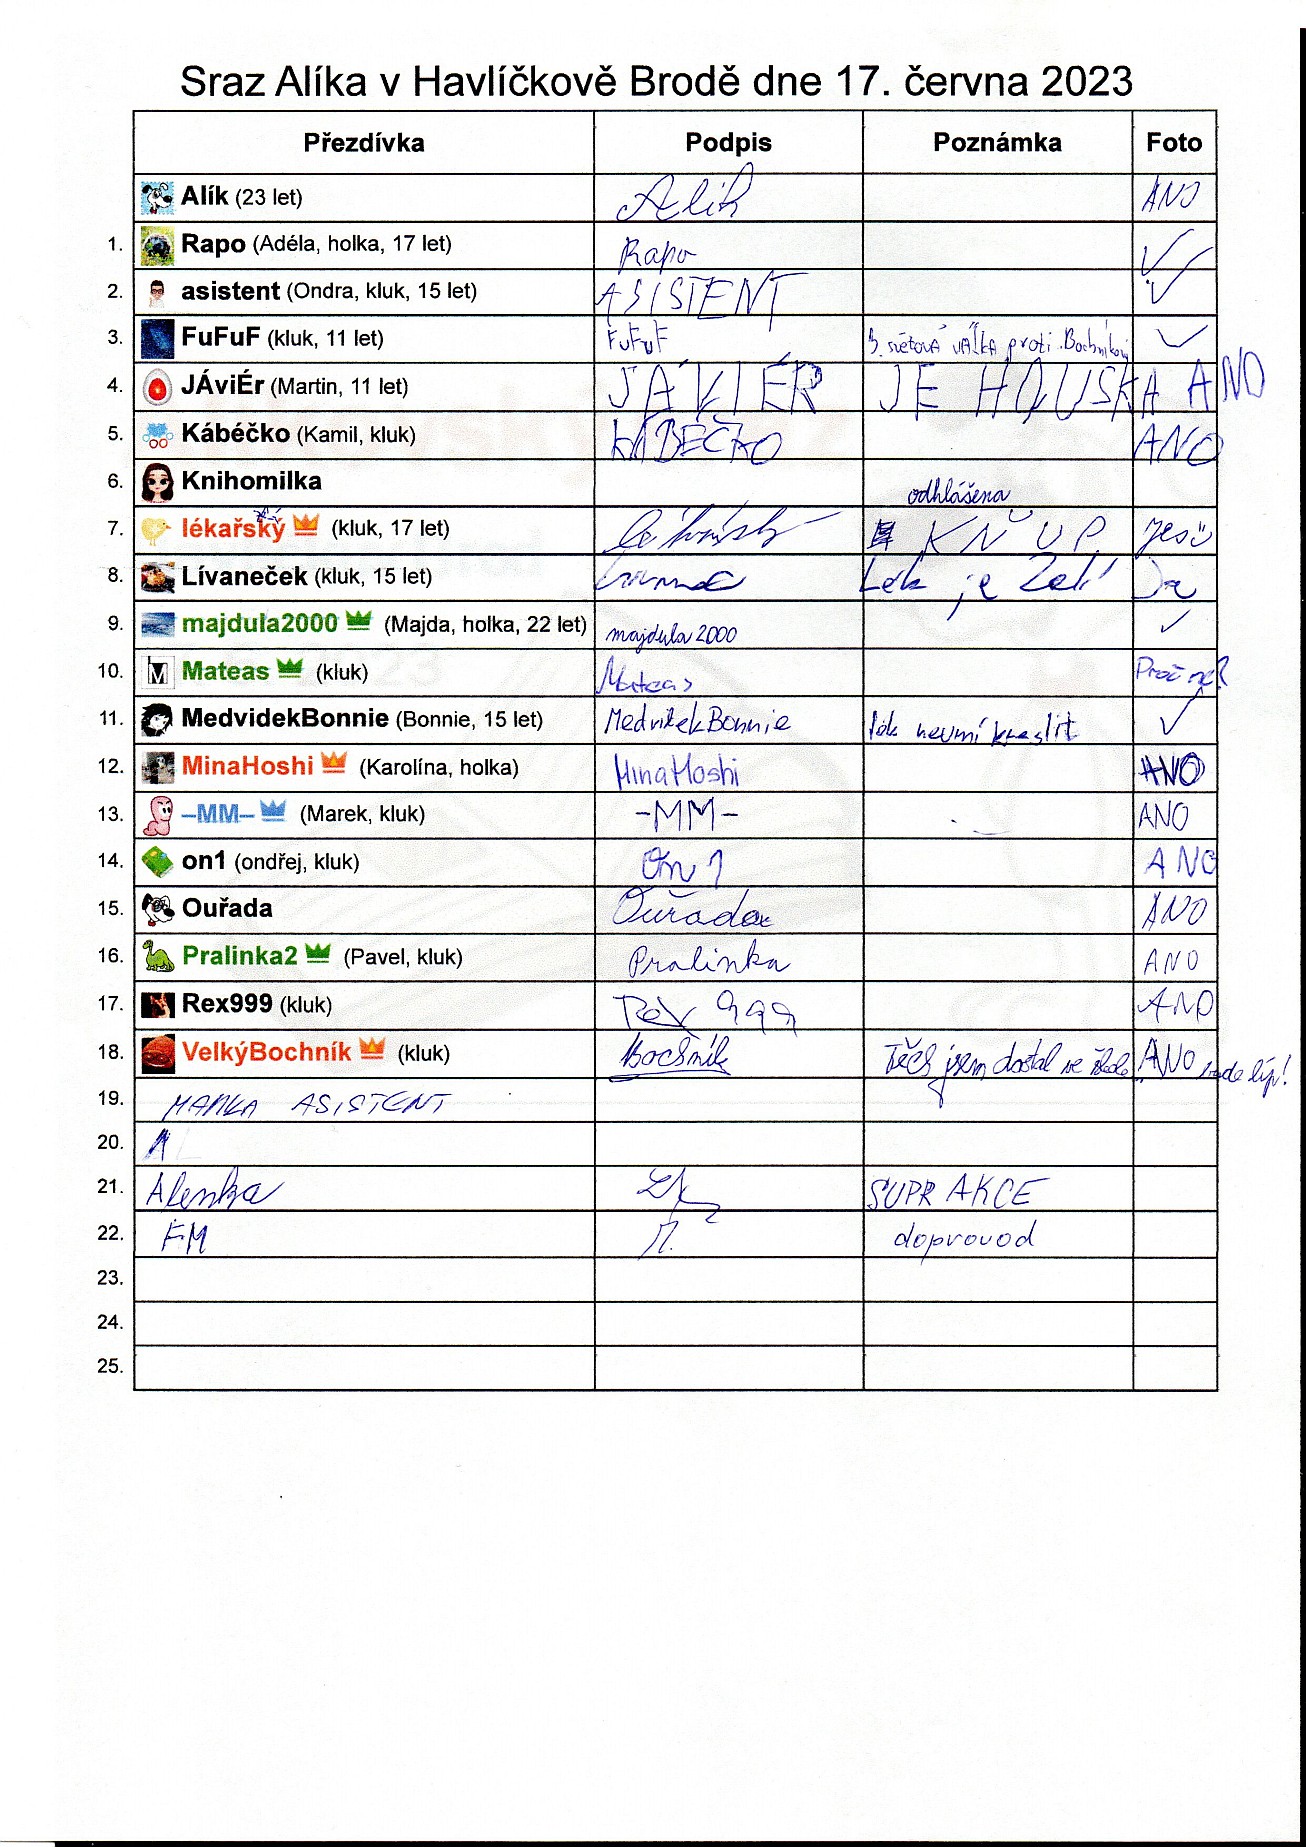 Sraz Alíka v Havlíčkově Brodě dne 17. června 2023
Přezdívka Podpis Poznámka Foto
Alík (23 let) Alík ANO
1. Rapo (Adéla, holka, 17 let) Rapo
2. asistent (Ondra, kluk, 15 let) ASISTENT
3. FuFuF (kluk, 11 let) FuFuF 3. světová válka proti Bochníkovi
4. JÁviÉr (Martin, 11 let) JÁVIÉR JE HOUSKA ANO
5. Kábéčko (Kamil, kluk) KÁBÉČKO ANO
6. Knihomilka odhlášena
7. lékařský (kluk, 17 let) KŇUP
8. Lívaneček (kluk, 15 let) Lék je Zelí
9. majdula2000 (Majda, holka, 22 let) majdula2000
10. Mateas (kluk) Mateas Proč ne?
11. MedvidekBonnie (Bonnie, 15 let) MedvidekBonnie lék neumí kreslit
12. MinaHoshi (Karolína, holka) MinaHoshi ANO
13. –MM– (Marek, kluk) -MM- ANO
14. on1 (ondřej, kluk) On1 ANO
15. Ouřada Ouřada ANO
16. Pralinka2 (Pavel, kluk) Pralinka ANO
17. Rex999 (kluk) Rex 999 ANO
18. VelkýBochník (kluk) Bochník Těch jsem dostal ve škole ANO bude líp!
19. MAMKA ASISTENT
20.
21. Alenka SUPR AKCE
22. FM M. doprovod
23.
24.
25.